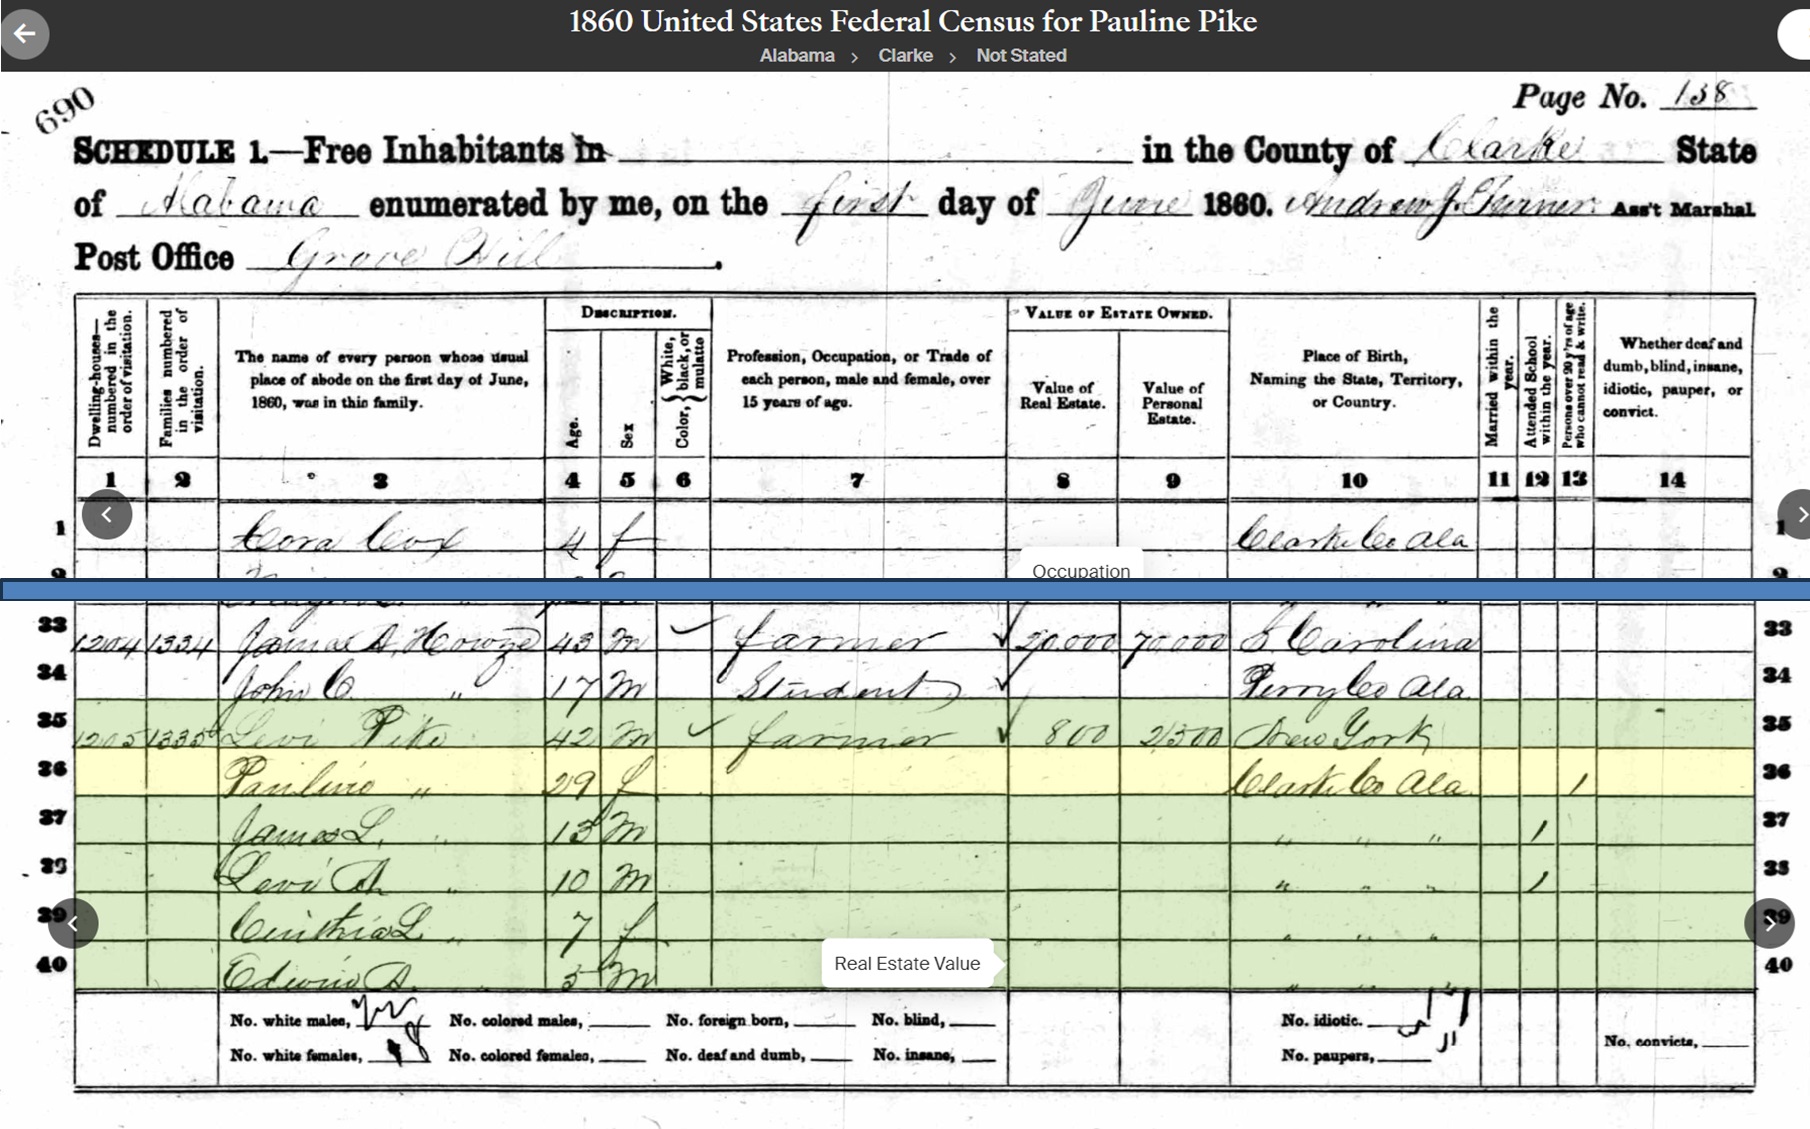 1860 United States Federal Census for Pauline Pike
Alabama > Clarke > Not Stated
690
Page No. 138
SCHEDULE 1.—Free Inhabitants in in the County of Clarke State
of Alabama enumerated by me, on the first day of June 1860. Andrew J. Turner Ass't Marshal
Post Office Grove Hill.
Dwelling-houses—numbered in the order of visitation.
Families numbered in the order of visitation.
The name of every person whose usual place of abode on the first day of June, 1860, was in this family.
DESCRIPTION.
Age.
Sex
Color, { White, black, or mulatto
Profession, Occupation, or Trade of each person, male and female, over 15 years of age.
VALUE OF ESTATE OWNED.
Value of Real Estate.
Value of Personal Estate.
Place of Birth, Naming the State, Territory, or Country.
Married within the year.
Attended School within the year.
Persons over 20 y'rs of age who cannot read & write.
Whether deaf and dumb, blind, insane, idiotic, pauper, or convict.
1 2 3 4 5 6 7 8 9 10 11 12 13 14
1 Cora Cox 4 f Clarke Co Ala 1
2 2
Occupation
33 1204 1334 James A. Howze 43 M farmer 20,000 70,000 S Carolina 33
34 John C. " 17 M Student Perry Co Ala. 34
35 1205 1335 Levi Pike 42 M farmer 800 2,500 New York 35
36 Pauline " 29 f Clark Co Ala. 1 36
37 James L. " 13 M " " " 1 37
38 Levi A. " 10 M " " " 1 38
39 Cinthia L. " 7 f " " " 39
40 Edwin A. " 5 M " " " 40
Real Estate Value
No. white males, No. colored males, No. foreign born, No. blind, No. idiotic.
No. white females, No. colored females, No. deaf and dumb, No. insane, No. paupers, No. convicts,